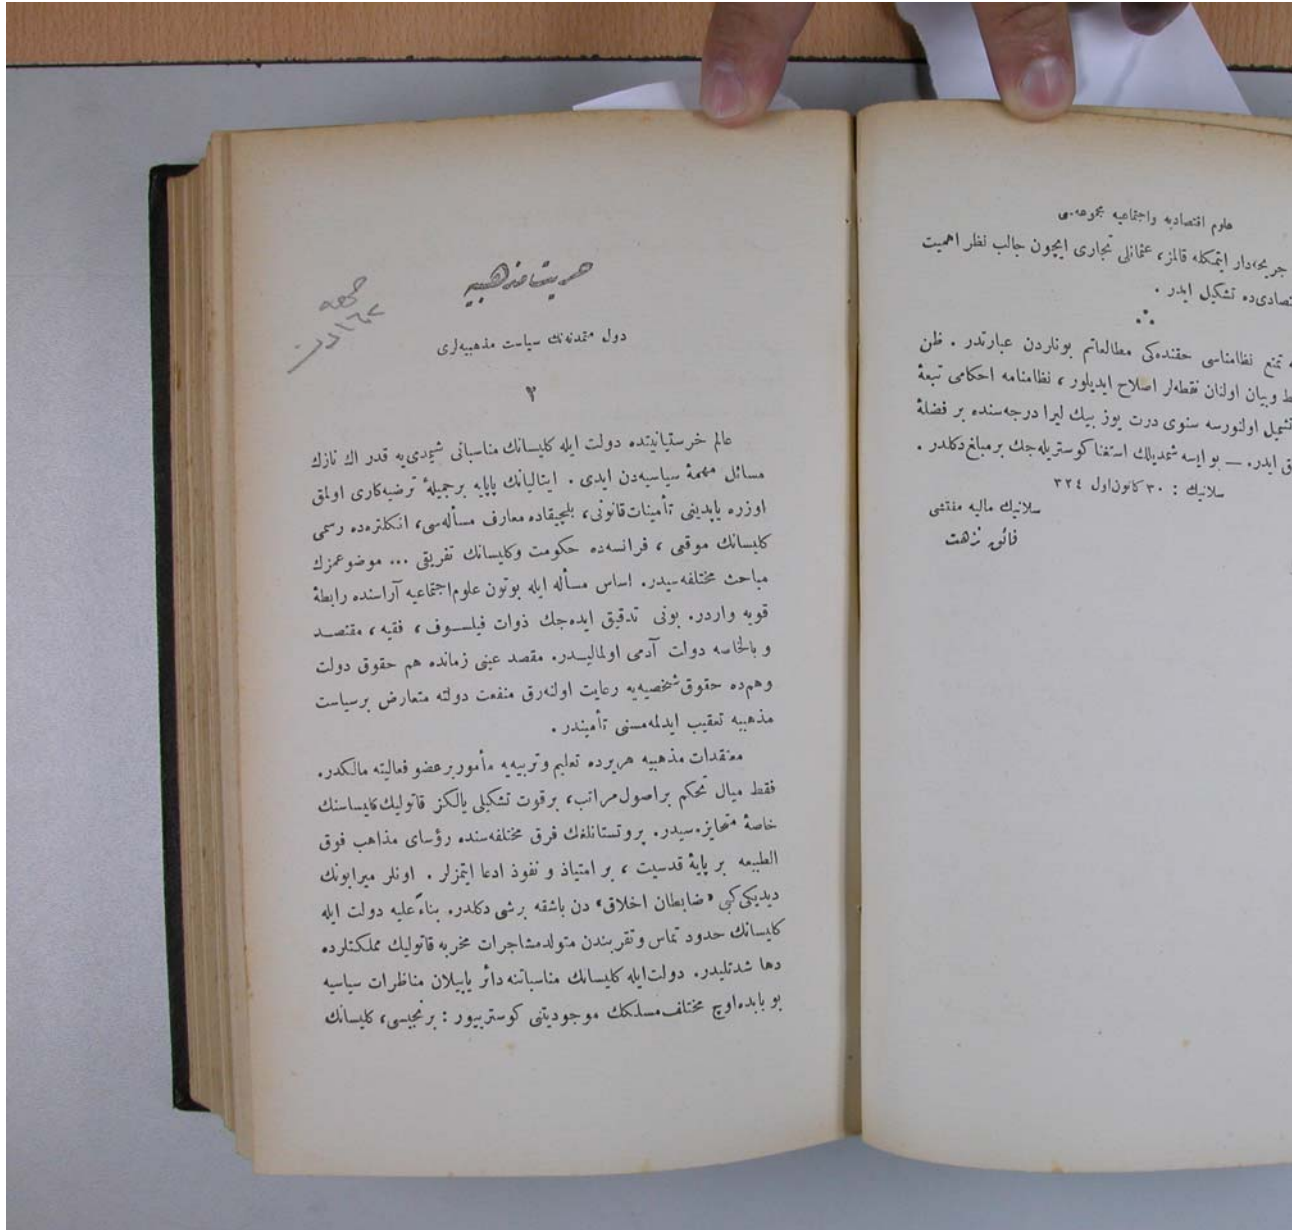 علوم اقتصاديه واجتماعيه مجموعه‌سى
جريحه‌دار ايتمكله قالمز، عثمانلى تجارى ايچون جالب نظر اهميت
تصادى‌ده تشكيل ايدر .
تمتع نظامناسى حقنده‌كى مطالعاتم بوناردن عبارتدر . ظن
ط وبيان اولنان نقطه‌لر اصلاح ايديلور ، نظامنامه احكامى تبعۀ
تشميل اولنورسه سنوى درت يوز بيك ليرا درجه‌سنده بر فضلۀ
ق ايدر. — بو ايسه شمديلك استغنا كوستريله‌جك برمبلغ دكلدر .
سلانيك : ٣٠ كانون‌اول ٣٢٤
سلانيك ماليه مفتشى
فائق نزهت
حريت مذهبيه
دول متمدنه‌نك سياست مذهبيه‌لرى
٢
عالم خرستيانيتده دولت ايله كليسانك مناسباتى شيمدى‌يه قدر اك نازك
مسائل مهمۀ سياسيه‌دن ايدى . ايتاليانك پاپايه برجميلۀ ترضيه‌كارى اولمق
اوزره ياپديغى تأمينات‌قانونى، بلچيقاده معارف مسأله‌سى، انكلتره‌ده رسمى
كليسانك موقعى ، فرانسه‌ده حكومت وكليسانك تفريقى ... موضوعمزك
مباحث مختلفه‌سيدر. اساس مسأله ايله بوتون علوم‌اجتماعيه آراسنده رابطۀ
قويه واردر. بونى تدقيق ايده‌جك ذوات فيلسوف ، فقيه ، مقتصد
و بالخاصه دولت آدمى اولماليدر. مقصد عينى زمانده هم حقوق دولت
وهم‌ده حقوق شخصيه‌يه رعايت اولنه‌رق منفعت دولته متعارض برسياست
مذهبيه تعقيب ايدلمه‌مسنى تأميندر .
معتقدات مذهبيه هريرده تعليم وتربيه‌يه مأموربرعضو فعاليته مالكدر.
فقط ميال تحكم براصول‌مراتب، برقوت تشكيلى يالكز قاتوليك‌كليساسنك
خاصۀ متمايزه‌سيدر. پروتستانلغك فرق مختلفه‌سنده رؤساى مذاهب فوق
الطبيعه بر پايۀ قدسيت ، بر امتياز و نفوذ ادعا ايتمزلر . اونلر ميرابونك
ديديكى‌كبى «ضابطان اخلاق» دن باشقه برشى دكلدر. بناءًعليه دولت ايله
كليسانك حدود تماس وتقربندن متولدمشاجرات مخربه قاتوليك مملكتلرده
دها شدتليدر. دولت‌ايله كليسانك مناسباتنه دائر ياپيلان مناظرات سياسيه
بو بابده‌اوچ مختلف‌مسلكك موجوديتنى كوستريپور : برنجيسى، كليسانك